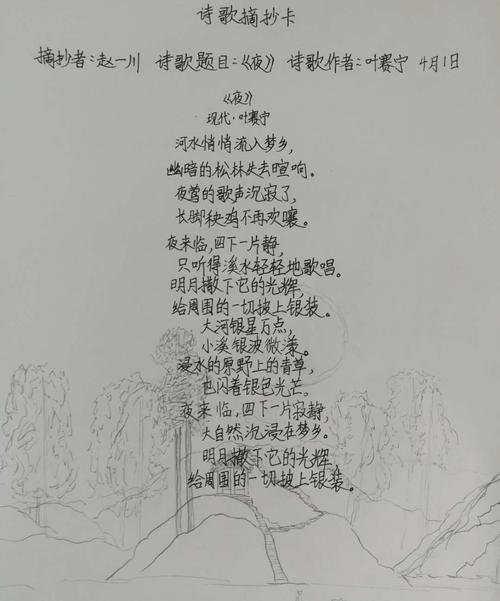 诗歌摘抄卡
摘抄者:赵一川 诗歌题目:《夜》 诗歌作者:叶赛宁 4月1日
《夜》
现代·叶赛宁
河水悄悄流入梦乡,
幽暗的松林失去喧响。
夜莺的歌声沉寂了,
长脚秧鸡不再欢嚷。
夜来临,四下一片静,
只听得溪水轻轻地歌唱。
明月撒下它的光辉,
给周围的一切披上银装。
大河银星万点,
小溪银波微漾。
浸水的原野上的青草,
也闪着银色光芒。
夜来临,四下一片寂静,
大自然沉浸在梦乡。
明月撒下它的光辉
给周围的一切披上银装。